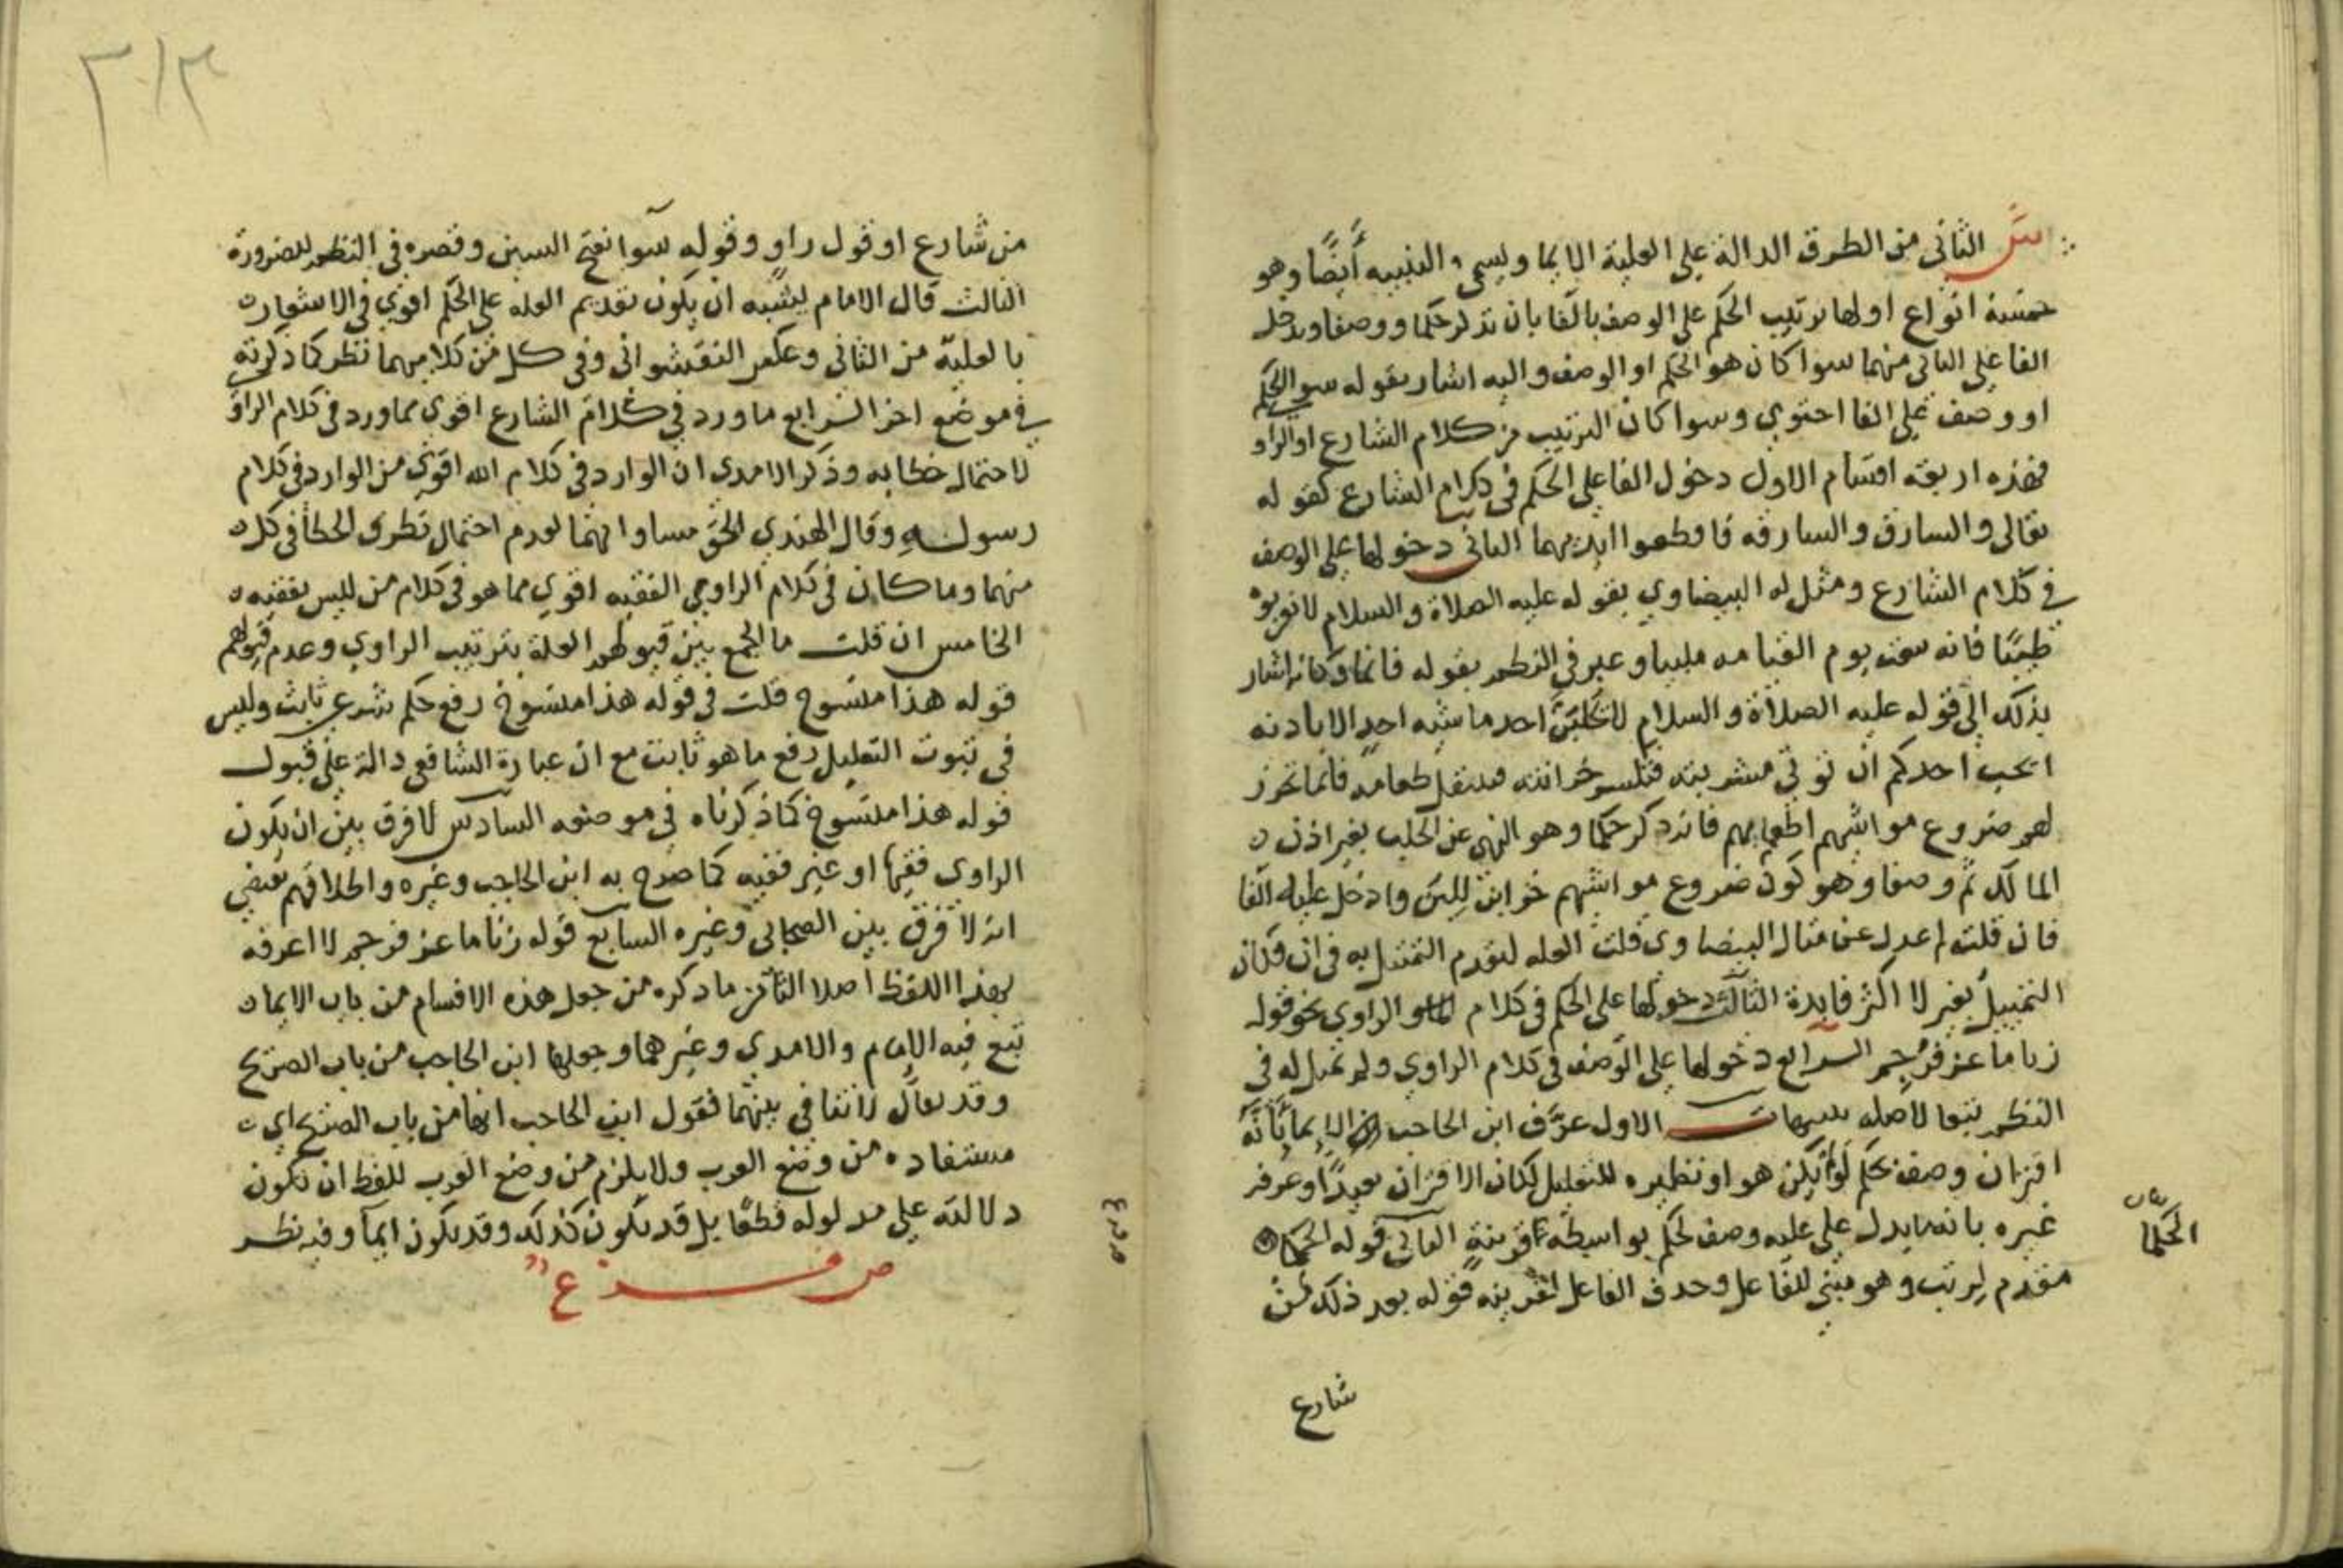 الثاني من الطرق الدالة على العلية الايما ويسمى التنبيه أيضًا وهو
خمسة انواع اولها ترتيب الحكم على الوصف بالفا بان تذكر حكما ووصفا وتدخل
الفا على الثاني منهما سوا كان هو الحكم او الوصف واليه اشار بقوله سوا الحكم
او وصف على الفا احتوي وسوا كان الترتيب من كلام الشارع او الراو
فهذه اربعة اقسام الاول دخول الفا على الحكم في كلام الشارع كقوله
تعالى والسارق والسارقة فاقطعوا ايديهما الثاني دخولها على الوصف
في كلام الشارع ومثل له البيضاوي بقوله عليه الصلاة والسلام لا تقربوه
طيبًا فانه يبعث يوم القيامه ملبيا وعبر في النظم بقوله فانما وكانه اشار
بذلك الى قوله عليه الصلاة والسلام لا تحلبن احد ماشيه احد الا باذنه
ايحب احدكم ان تؤتي مشربته فتكسر خزانته فينتقل طعامه فانما تحرز
لهم ضروع مواشيهم اطعماتهم فانه ذكر حكما وهو النهي عن الحلب بغير اذن
المالك ثم وصفا وهو كون ضروع مواشيهم خزاين للبن وادخل عليه الفا
فان قلت لم عدل عن مثال البيضاوي قلت لعله لتقدم التمثيل به في ان فكان
التمثيل بغيره اكثر فايدة الثالث دخولها على الحكم في كلام الراوي نحو قوله
زنا ماعز فرُجم الرابع دخولها على الوصف في كلام الراوي ولم يمثل له في
النظم تبعا لاصله تنبيهات الاول عرّف ابن الحاجب الايما بأنَّه
اقتران وصف بحكم لو لم يكن هو او نظيره للتعليل لكان الاقتران بعيدًا وعرفه
غيره بانه ما يدل على عليه وصف لحكم بواسطة قرينة الثاني قوله الحكما
مقدم لرتب وهو مبني للفاعل وحذف الفاعل لقرينه قوله بعد ذلك من
شارع
الحكما
من شارع او قول راو وقوله سوا بفتح السين وقصره في النظم للضرورة
الثالث قال الامام يشبه ان يكون تقديم العله على الحكم اقوي في الاشعار
بالعلية من الثاني وعكس النقشواني وفي كل من كلاميهما نظر كما ذكرته
في موضع اخر الرابع ما ورد في كلام الشارع اقوى مما ورد في كلام الراو
لاحتمال خطايه وذكر الامدي ان الوارد في كلام الله اقوي من الوارد في كلام
رسوله وقال الهندي الحق مساواتهما لعدم احتمال تطرق الخطأ في كل
منهما وما كان في كلام الراوي الفقيه اقوي مما هو في كلام من ليس بفقيه
الخامس ان قلت ما الجمع بين قبولهم العلة بترتيب الراوي وعدم قبولهم
قوله هذا منسوخ قلت في قوله هذا منسوخ رفع حكم شرعي ثابت وليس
في ثبوت التعليل رفع ما هو ثابت مع ان عبارة الشافعي دالة على قبول
قوله هذا منسوخ كما ذكرناه في موضعه السادس لا فرق بين ان يكون
الراوي فقيها او غير فقيه كما صرح به ابن الحاجب وغيره واطلاقهم يقتضي
انه لا فرق بين الصحابي وغيره السابع قوله زنا ماعز فرجم لا اعرفه
بهذا اللفظ اصلا الثامن ما ذكره من جعل هذه الاقسام من باب الايما
تبع فيه الإمام والامدي وغيرهما وجعلها ابن الحاجب من باب الصريح
وقد يقال لا تنافي بينهما فقول ابن الحاجب انها من باب الصريح اي
مستفاده من وضع العرب ولا يلزم من وضع العرب للفظ ان تكون
دلالته على مدلوله قطعًا بل قد يكون كذلك وقد يكون ايمآ وفيه نظر
ص فرع
٣١٣